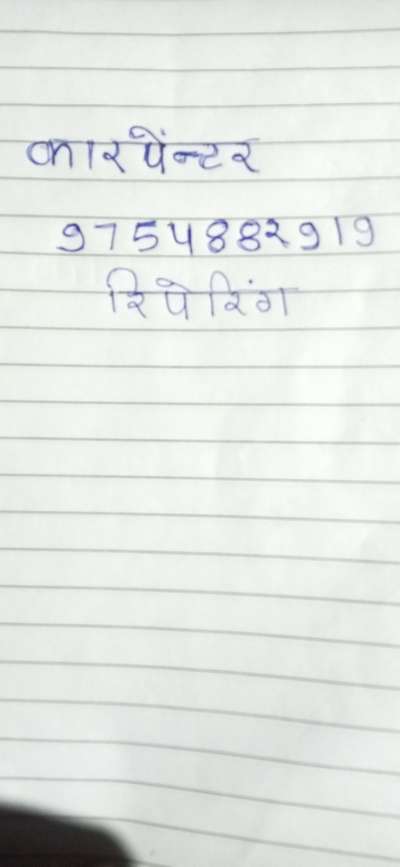 कारपेंन्टर
9754882919
रिपेरिंग